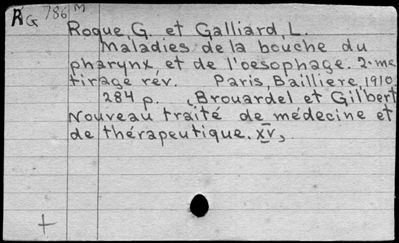 RG 786 M
Roque, G. et Galliard, L.
Maladies de la bouche du
pharynx, et de l'oesophage. 2.me
tirage rév. Paris, Bailliere, 1910.
284 p. (Brouardel et Gilbert
Nouveau traité de médecine et
de thérapeutique. XV)